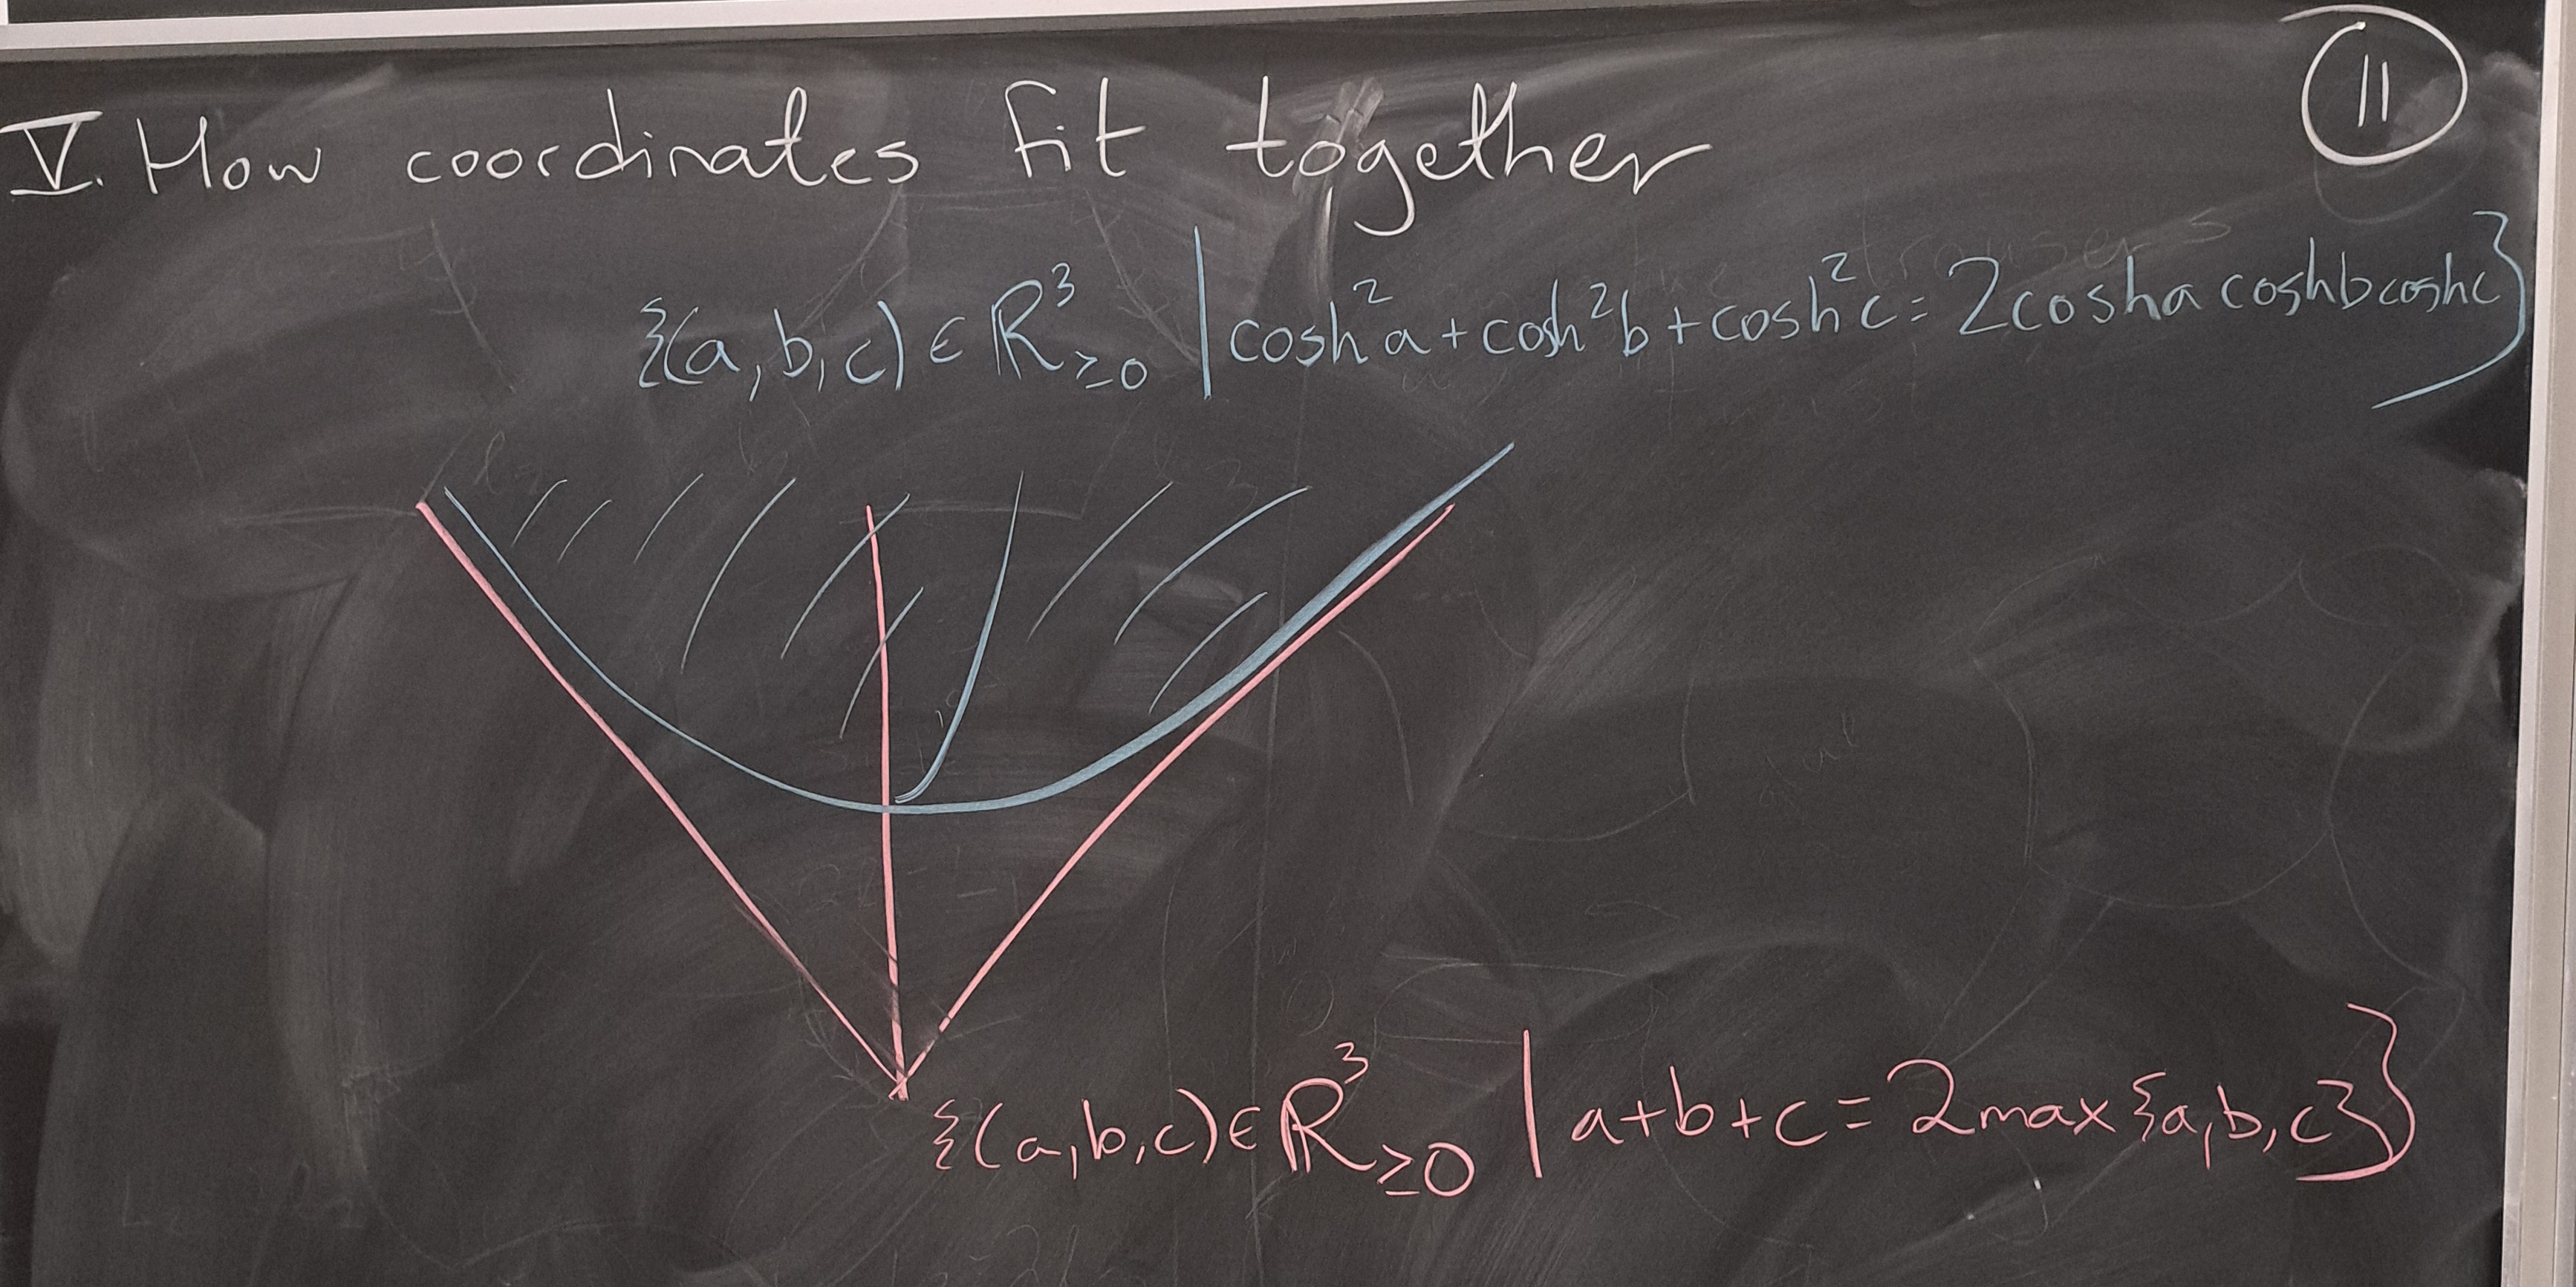 V. How coordinates fit together
11
{(a, b, c) ∈ ℝ³≥0 | cosh²a + cosh²b + cosh²c = 2cosha coshb coshc}
{(a, b, c) ∈ ℝ³≥0 | a+b+c = 2max{a, b, c}}